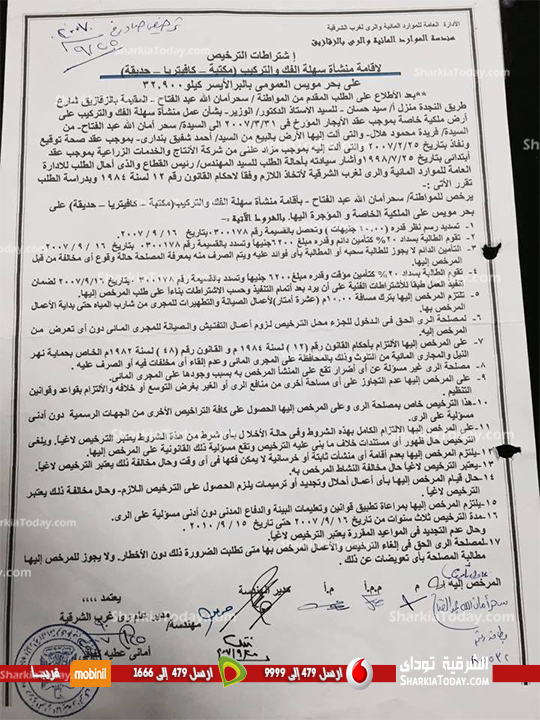 الإدارة العامة للموارد المائية والرى لغرب الشرقية
هندسة الموارد المائية والرى بالزقازيق
إشتراطات الترخيص
لإقامة منشأة سهلة الفك والتركيب (مكتبة – كافيتريا – حديقة)
على بحر مويس العمومى بالبر الأيسر كيلو ٣٢,٩٠٠
**بعد الإطلاع على الطلب المقدم من المواطنة / سحر أمان الله عبد الفتاح – المقيمة بالزقازيق شارع
طريق النجدة منزل أ/ سيد حسان – للسيد الاستاذ الدكتور/ الوزير- بشأن عمل منشأة سهلة الفك والتركيب على
أرض ملكية خاصة بموجب عقد الأيجار المؤرخ فى ٢٠٠٧/٣/٣١ والتى الى السيدة/ سحر أمان الله عبد الفتاح- من
السيدة/ فريدة محمود هلال- والتى آلت إليها الأرض بالبيع من السيد/ أحمد شفيق بندارى- بموجب عقد صحة توقيع
ونفاذ بتاريخ ٢٠٠٧/٢/٢٥ والتى آلت إليه بموجب مزاد علنى من شركة الأنتاج والخدمات الزراعية بموجب عقد
أبتدائى بتاريخ ١٩٩٨/٧/٢٥ وأشار سيادته بأحالة الطلب للسيد المهندس/ رئيس القطاع والذى أحال الطلب للادارة
العامة للموارد المائية والرى لغرب الشرقية لأتخاذ اللازم وفقا لاحكام القانون رقم ١٢ لسنة ١٩٨٤ وبدراسة الطلب
تقرر الأتى :-
يرخص للمواطنة/ سحر أمان الله عبد الفتاح – بأقامة منشأة سهلة الفك والتركيب (مكتبة – كافيتريا – حديقة) على
بحر مويس على الملكية الخاصة و المؤجرة اليها. بالشروط الآتية :-
١- تسديد رسم نظر قدره (١٠,٠٠ جنيهات) وتحصل بالقسيمة رقم ٠٣٠٠١٧٨ بتاريخ ١٦ / ٩ / ٢٠٠٧.
٢- تقوم الطالبة بسداد ٢٠% كتأمين دائم وقدره مبلغ ٦٢٠٠ جنيها وتسدد بالقسيمة رقم ٠٣٠٠١٧٨ بتاريخ ١٦ / ٩ / ٢٠٠٧.
٣- التأمين الدائم لا يجوز للطالبة سحبه أو المطالبة بأى فوائد عليه ويتم الصرف منه بمعرفة المصلحة حالة وقوع أى مخالفة من قبل
المرخص إليها.
٤- تقوم الطالبة بسداد ٢٠% كتأمين مؤقت وقدره مبلغ ٦٢٠٠ جنيها وتسدد بالقسيمة رقم ٠٣٠٠١٧٨، بتاريخ ٢٠٠٧/٩/١٦ لضمان
تنفيذ العمل طبقا للأشتراطات الفنية على أن يرد بعد أتمام التنفيذ وحسب الاشتراطات بناءاً على طلب المرخص إليها.
٥- تلتزم المرخص إليها بترك مسافة ١٠,٠٠م (عشرة أمتار) لأعمال الصيانة والتطهيرات للمجرى من شارب المياه حتى بداية الأعمال
المرخص بها.
٦- لمصلحة الرى الحق فى الدخول للجزء محل الترخيص لزوم أعمال التفتيش والصيانة للمجرى المائى دون أى تعرض من
المرخص إليه.
٧- على المرخص إليها الألتزام بأحكام القانون رقم (١٢) لسنة ١٩٨٤م و القانون رقم (٤٨) لسنة ١٩٨٢م الخاص بحماية نهر
النيل والمجارى المائية من التلوث وذلك بالمحافظة على المجرى المائى وعدم إلقاء أى مخلفات فيه أو الصرف عليه.
٨- مصلحة الرى غير مسئولة عن أى أضرار تقع على المنشأ المرخص به بسبب وجودها على المجرى المائى.
٩- على المرخص إليها عدم التجاوز على أى مساحة أخرى من منافع الرى أو الغير بغرض التوسع أو خلافه والألتزام بقواعد وقوانين
التنظيم.
١٠- هذا الترخيص خاص بمصلحة الرى وعلى المرخص إليها الحصول على كافة التراخيص الأخرى من الجهات الرسمية دون أدنى
مسئولية على الرى.
١١- على المرخص إليها الألتزام الكامل بهذه الشروط وفى حالة الأخلال بأى شرط من هذة الشروط يعتبر الترخيص لاغياً. ويلغى
الترخيص حال ظهور أى مستندات خلاف ما بنى عليه الترخيص وتقع مسئولية ذلك القانونية على المرخص إليها.
١٢- يلتزم المرخص إليها بعدم أقامة أى منشأت ثابتة أو خرسانية لا يمكن فكها فى أى وقت وحال مخالفة ذلك يعتبر الترخيص لاغياً.
١٣- يعتبر الترخيص لاغياً حال مخالفة النشاط المرخص به.
١٤- حال قيام المرخص إليها بأى أعمال أحلال وتجديد أو ترميمات يلزم الحصول على الترخيص اللازم- وحال مخالفة ذلك يعتبر
الترخيص لاغياً.
١٥- يلتزم المرخص إليها بمراعاة تطبيق قوانين وتعليمات البيئة والدفاع المدنى دون أدنى مسئولية على الرى.
١٦- مدة الترخيص ثلاث سنوات من تاريخ ١٦ / ٩ / ٢٠٠٧ حتى تاريخ ١٥ / ٩ / ٢٠١٠.
وحال عدم التجديد فى المواعيد المقررة يعتبر الترخيص لاغياً.
١٧- لمصلحة الرى الحق فى إلغاء الترخيص والأعمال المرخص بها متى تطلبت الضرورة ذلك دون الأخطار. ولا يجوز للمرخص إليها
مطالبة المصلحة بأى تعويضات عن ذلك.
المرخص إليه
م
م.م.أ
م.أ
مدير الهندسة
يعتمد ,,,,,
سحر أمان الله عبد الفتاح
مهندسة/
مدير عام رى غرب الشرقية
أمانى عطيه
SharkiaToday.com
الشرقية توداى
SHARKIATODAY.COM
ارسل 479 إلى 9999
ارسل 479 إلى 1666
mobinil